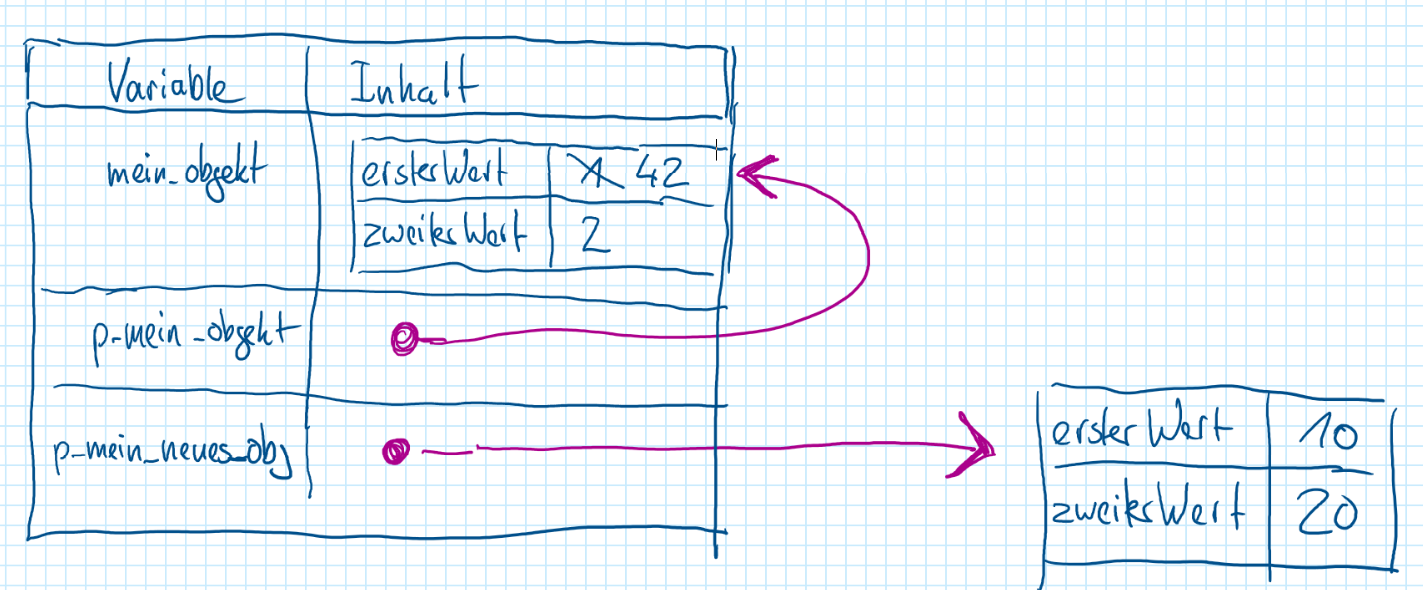 Variable Inhalt
mein_objekt ersterWert 1 42
zweitesWert 2
p_mein_objekt
p_mein_neues_obj
ersterWert 10
zweitesWert 20